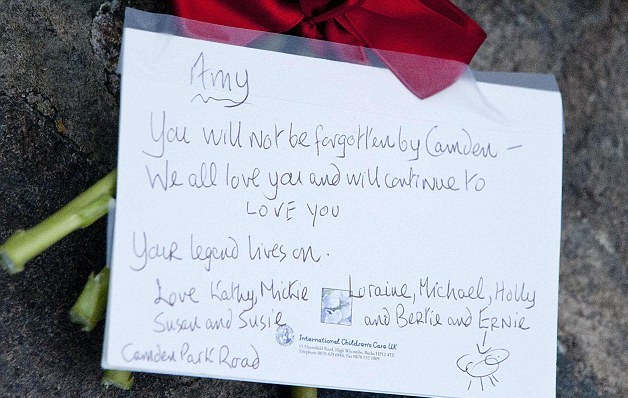 Amy
You will not be forgotten by Camden –
We all love you and will continue to
LOVE YOU
Your legend lives on.
Love Kathy, Mickie Loraine, Michael, Holly
Susan and Susie and Bertie and ERNIE
International Children's Care UK
High Wycombe, Bucks
Camden Park Road